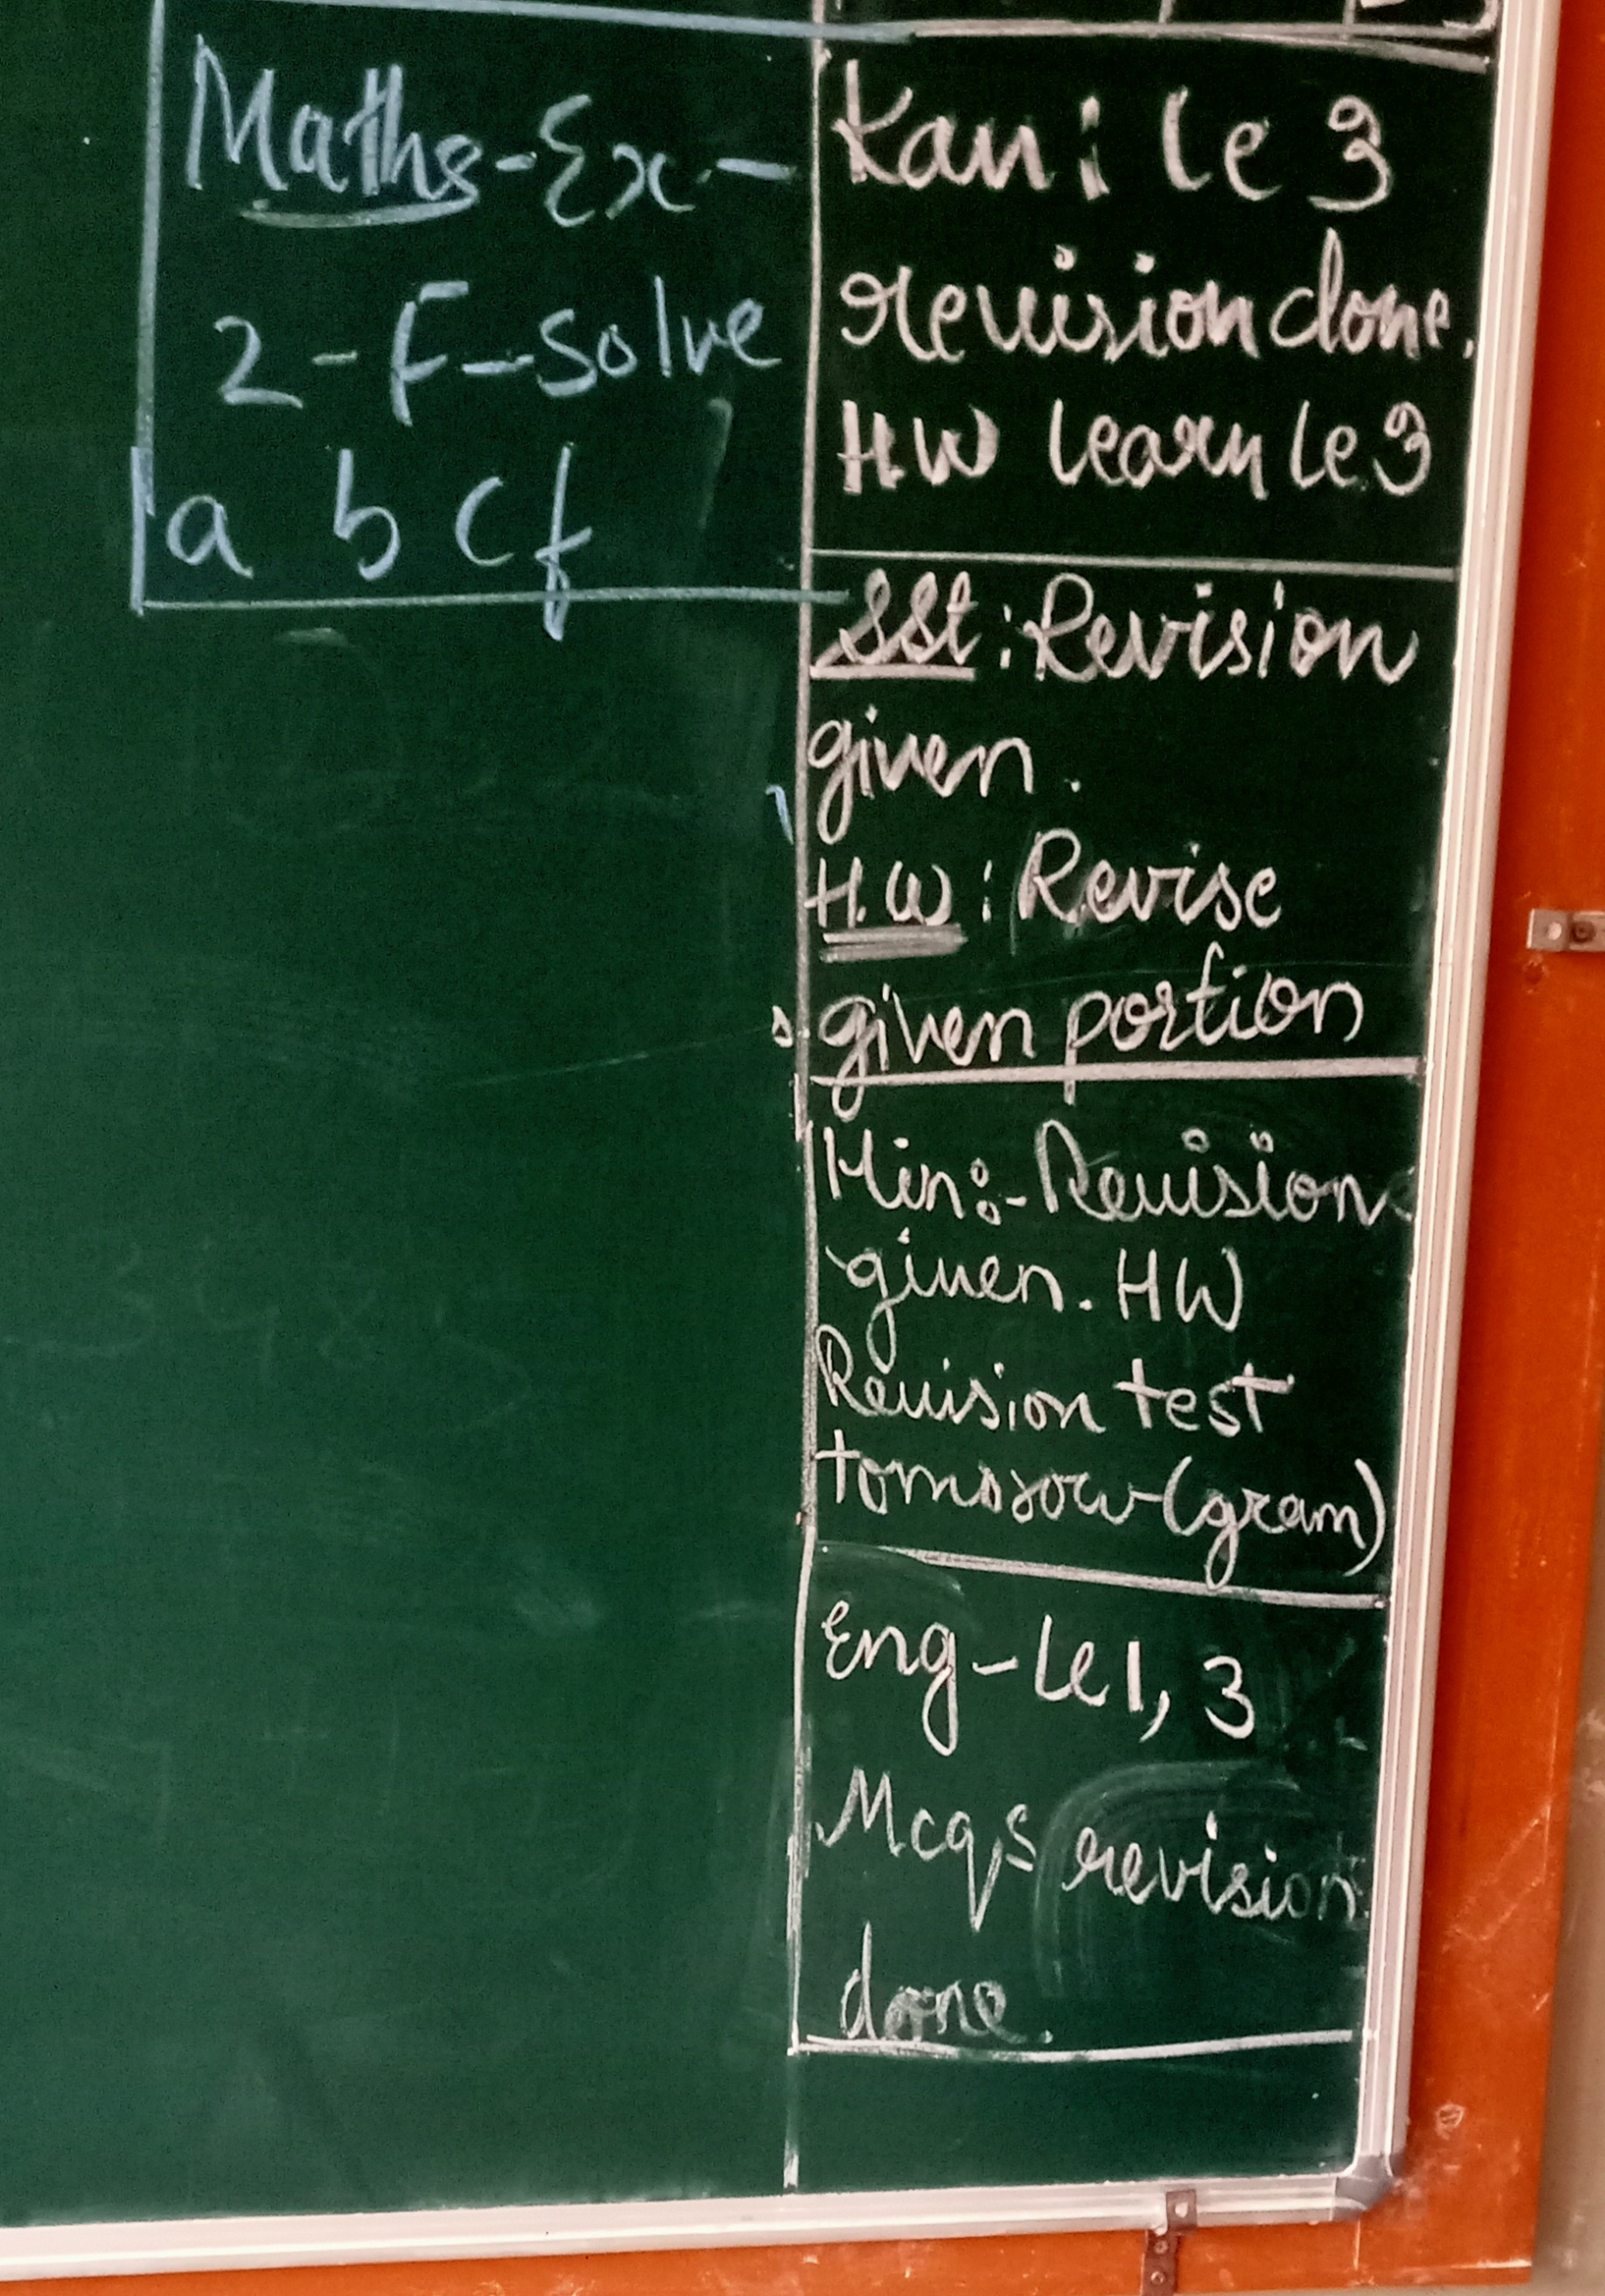 Maths - Ex -
2 - F - Solve
a b c f
Kan : le 3
revision done.
H.W learn le 3
SSt : Revision
given.
H.W : Revise
given portion
Hin :- Revision
given. HW
Revision test
tomorow (gram)
Eng - le 1, 3
Mcqs revision
done.